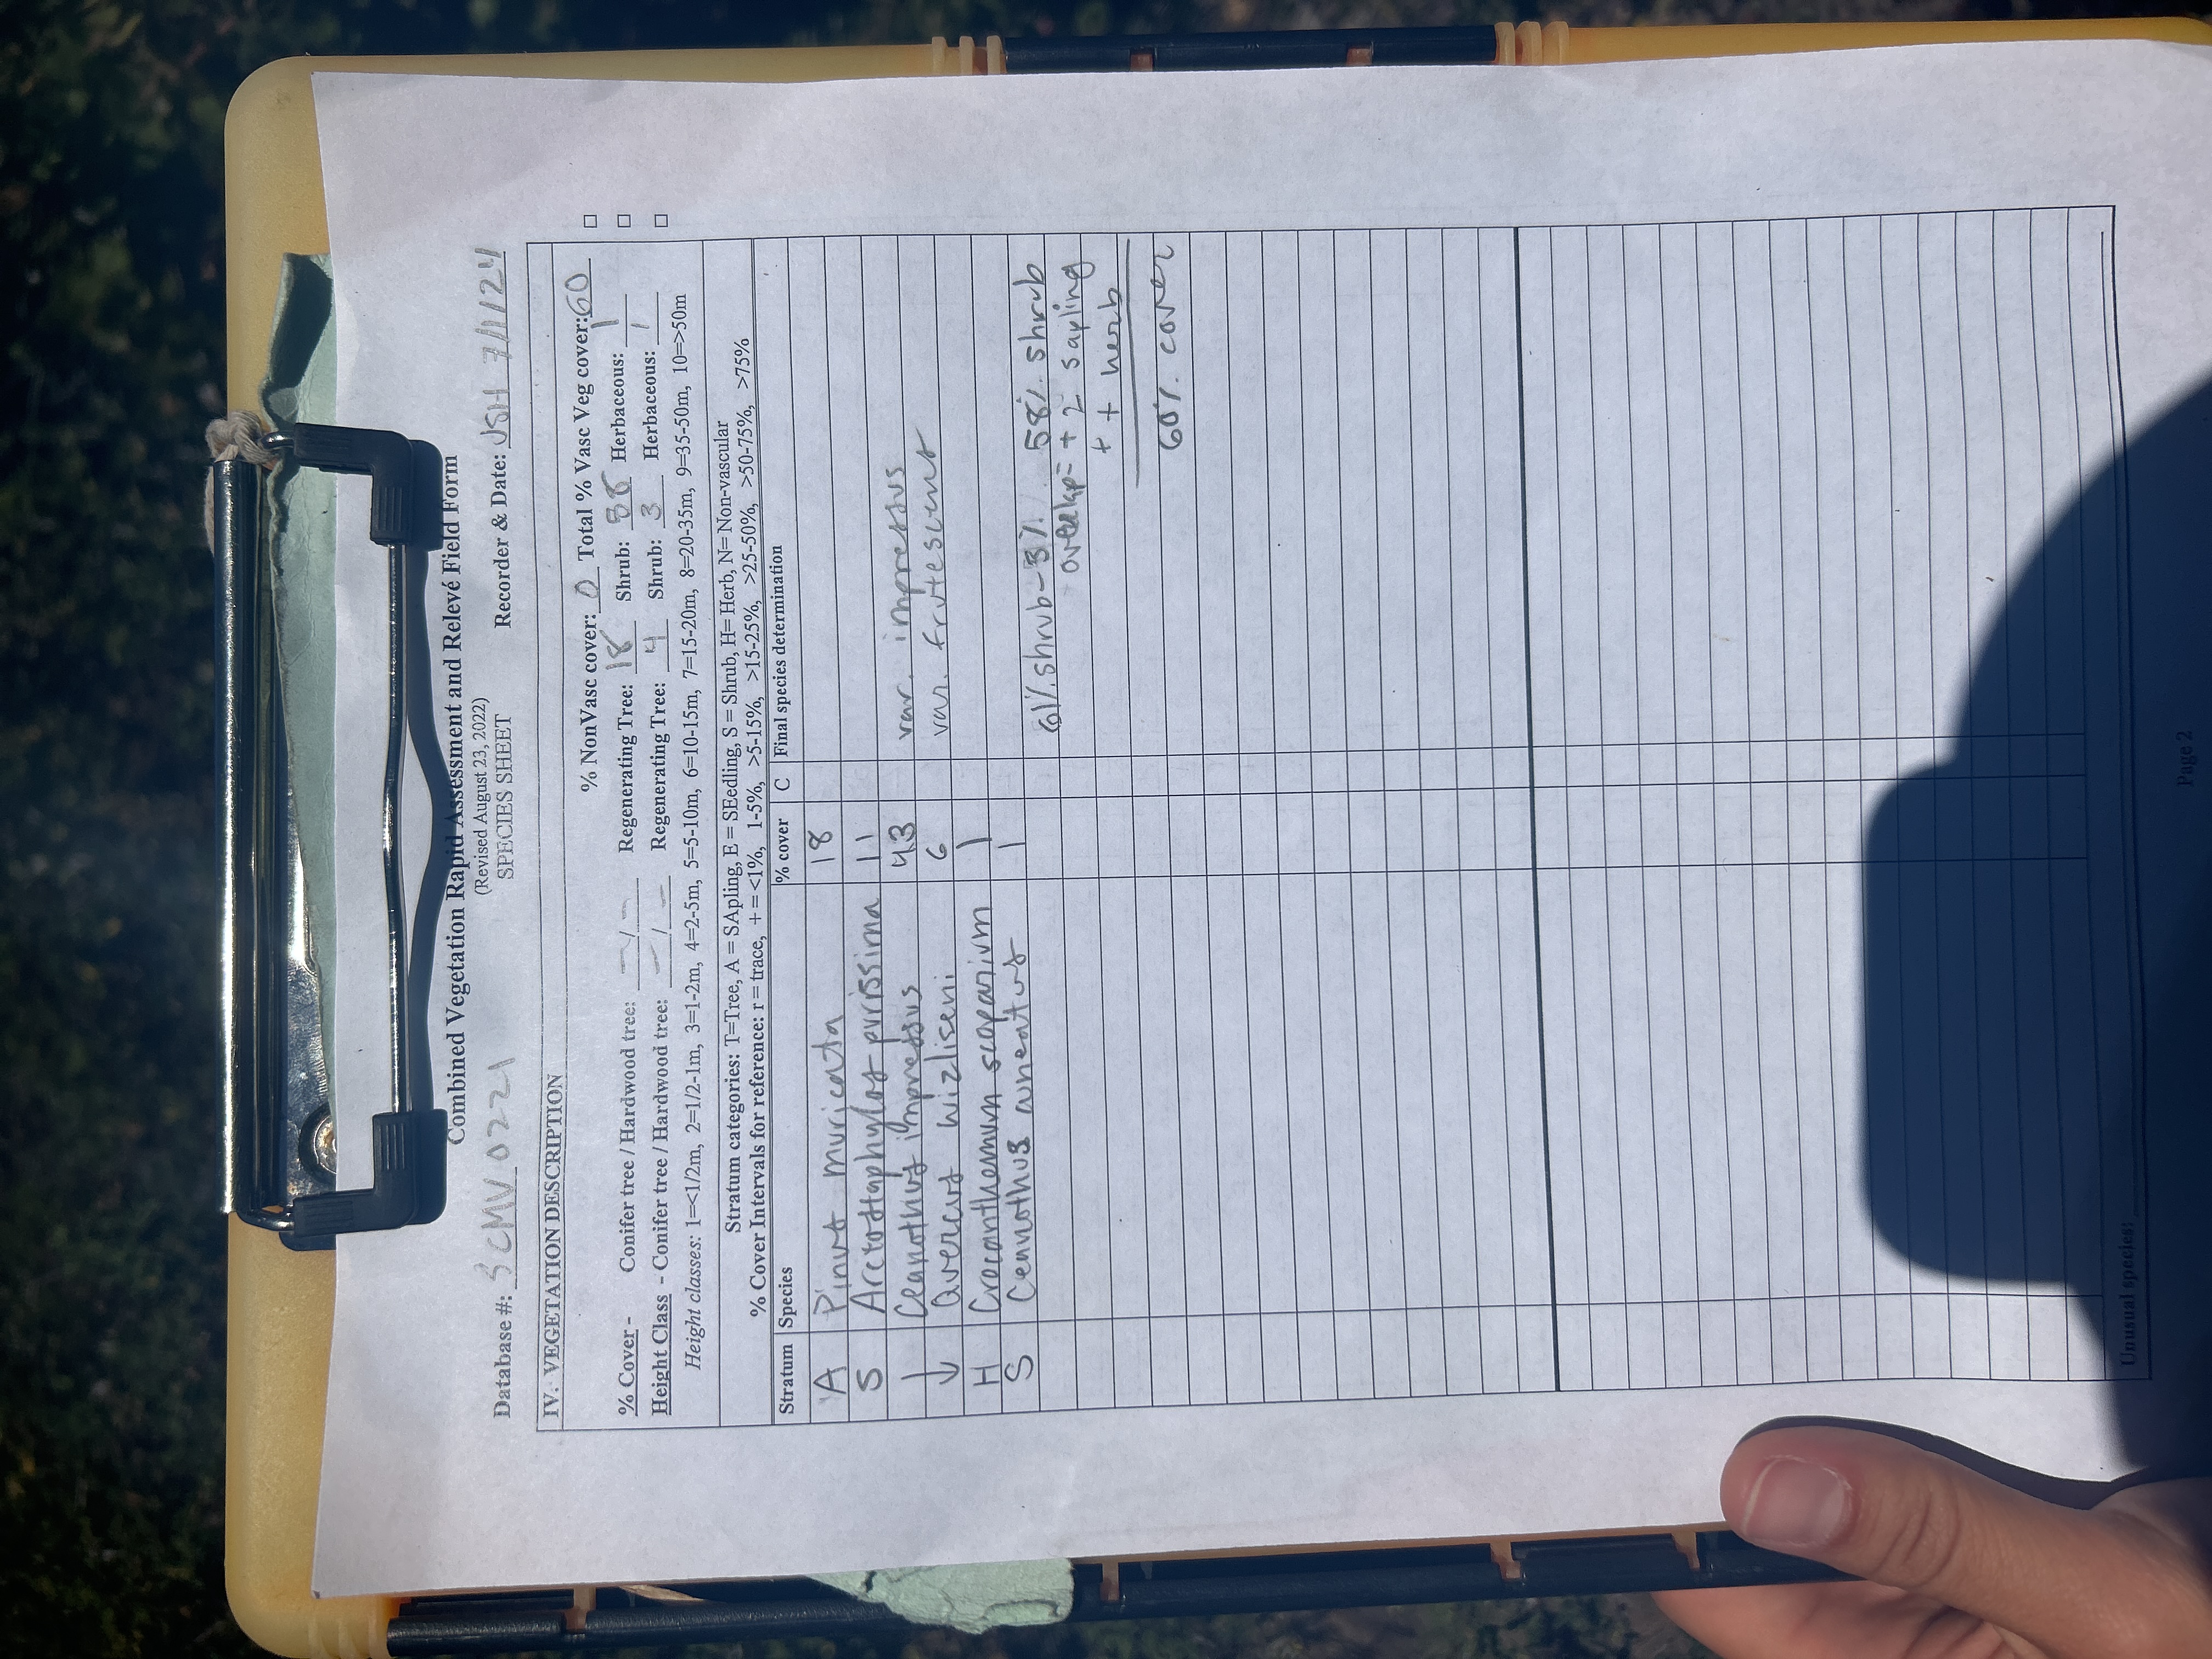 Combined Vegetation Rapid Assessment and Relevé Field Form
(Revised August 23, 2022)
SPECIES SHEET
Database #: SCMV0221 Recorder & Date: JSH 7/1/24
IV. VEGETATION DESCRIPTION
% NonVasc cover: 0 Total % Vasc Veg cover: 60
% Cover - Conifer tree / Hardwood tree: - / - Regenerating Tree: 18 Shrub: 58 Herbaceous: 1
Height Class - Conifer tree / Hardwood tree: - / - Regenerating Tree: 4 Shrub: 3 Herbaceous: 1
Height classes: 1=<1/2m, 2=1/2-1m, 3=1-2m, 4=2-5m, 5=5-10m, 6=10-15m, 7=15-20m, 8=20-35m, 9=35-50m, 10=>50m
Stratum categories: T=Tree, A = SApling, E = SEedling, S = Shrub, H= Herb, N= Non-vascular
% Cover Intervals for reference: r = trace, + = <1%, 1-5%, >5-15%, >15-25%, >25-50%, >50-75%, >75%
Stratum Species % cover C Final species determination
A Pinus muricata 18
S Arctostaphylos purissima 11
↓ Ceanothus impressus 43 var. impressus
↓ Quercus wizliseni 6 var. frutescens
H Crocanthemum scoparium 1
S Ceanothus cuneatus 1
61% shrub - 3% overlap = 58% shrub
+ 2 sapling
+ + herb
60% cover
Unusual species:
Page 2